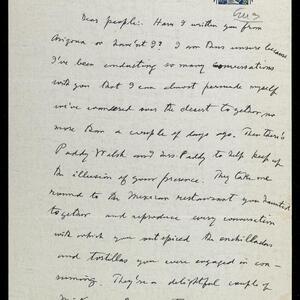 Dear people: Have I written you from
Arizona or haven't I? I am thus unsure because
I've been conducting so many conversations
with you that I can almost persuade myself
we've wandered over the desert together no
more than a couple of days ago. Then there's
Paddy Walsh and Mrs Paddy to help keep up
the illusion of your presence. They take me
round to the Mexican restaurant you haunted
together and reproduce every conversation
with which you outspiced the enchilladas
and tortillas you were engaged in con-
suming. They're a delightful couple of